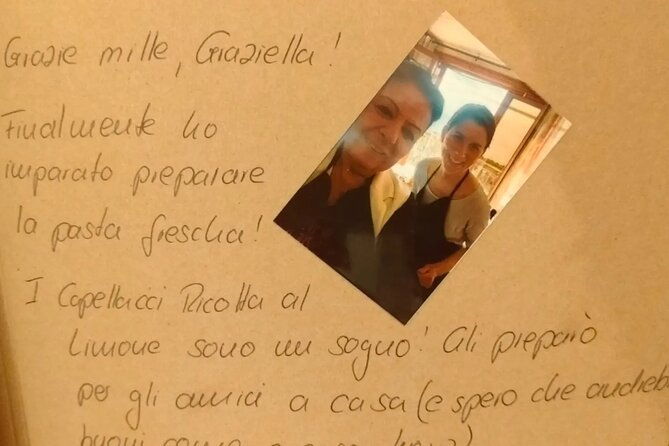 Grazie mille, Graziella!
Finalmente ho
imparato preparare
la pasta frescha!
I Capellacci Ricotta al
Limone sono un sogno! Gli preparò
per gli amici a casa (e spero che
buoni come